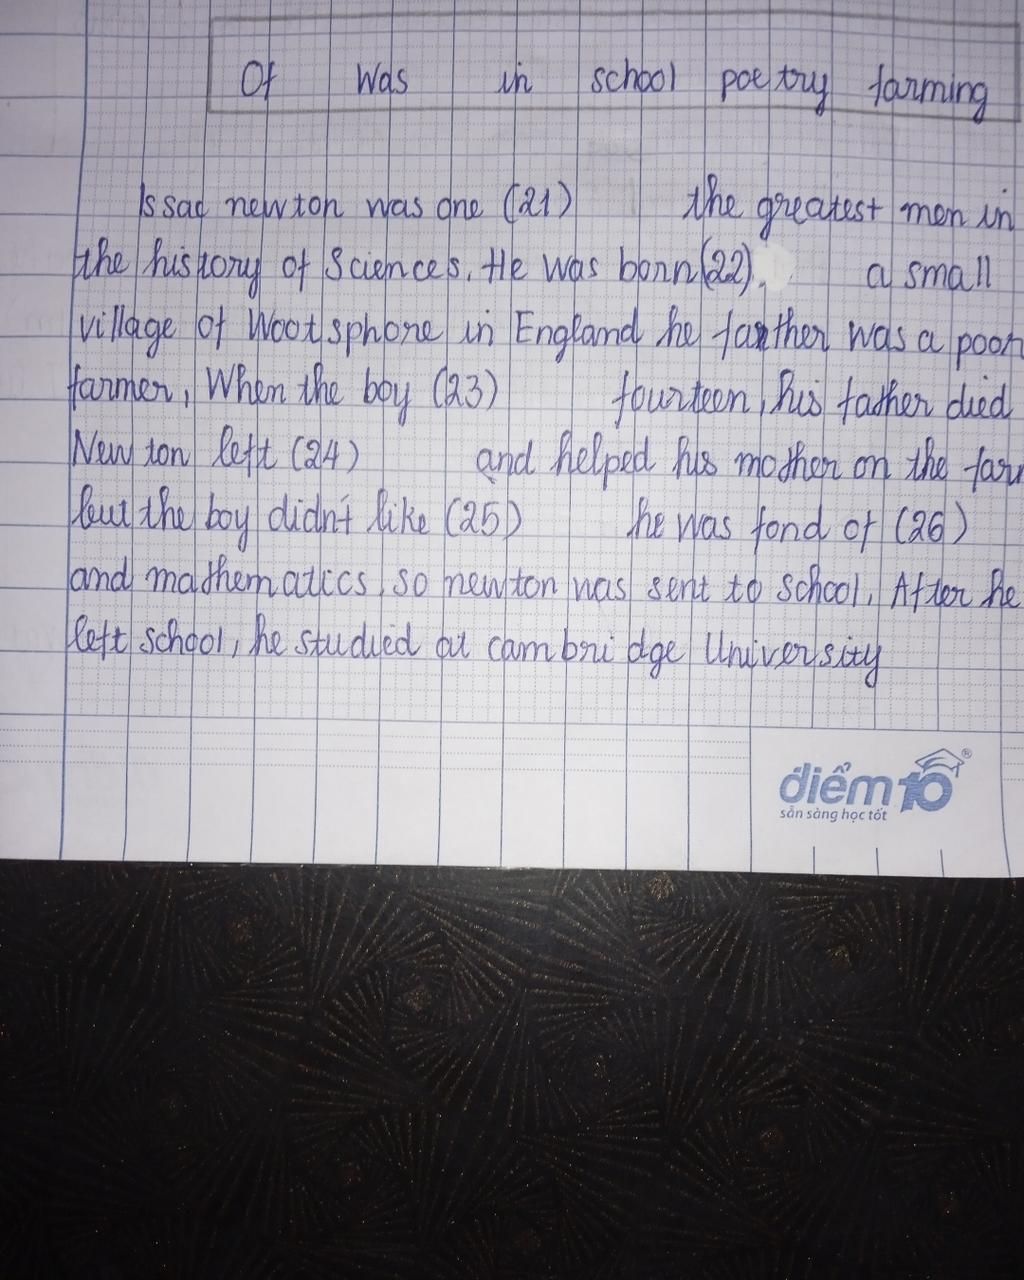 Of was in school poetry farming
Issac newton was one (21) the greatest men in
the history of Sciences. He was born (22). a small
village of Wootsphore in England he farther was a poor
farmer, When the boy (23) fourteen, his father died
Newton left (24) and helped his mother on the far
but the boy didn't like (25) he was fond of (26)
and mathematics, so newton was sent to school. After he
left school, he studied at cambridge University
điểm 10 ®
sẵn sàng học tốt